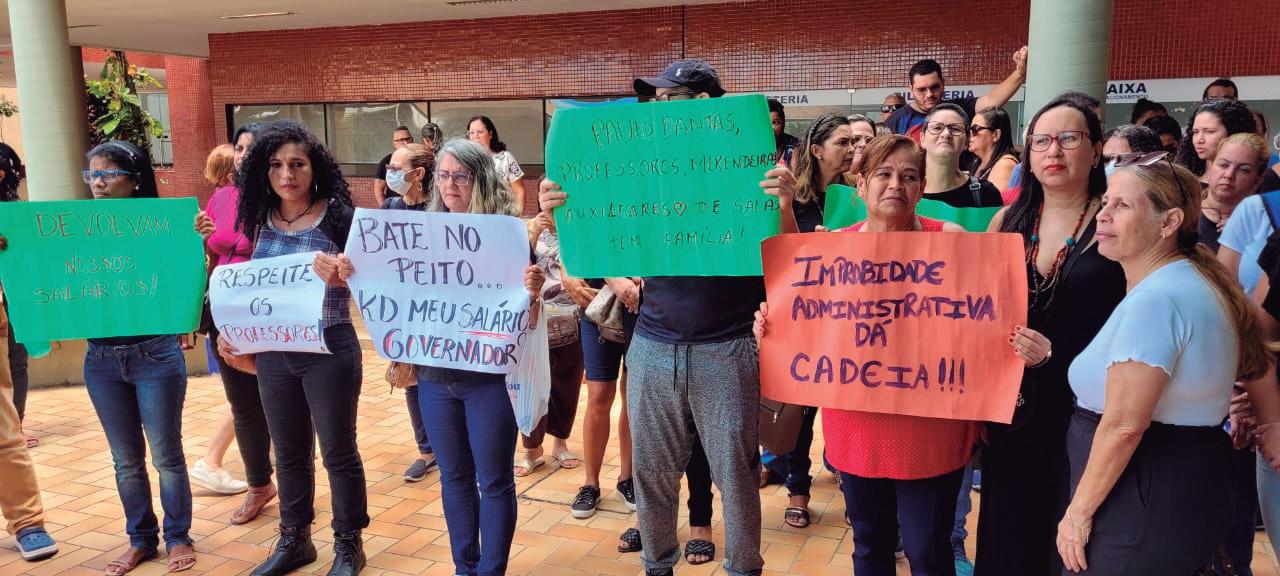 DEVOLVAM
NOSSOS
SALÁRIOS!
RESPEITE
OS
PROFESSORES!
BATE NO
PEITO...
KD MEU SALÁRIO
GOVERNADOR?
PAULO DANTAS,
PROFESSORES, MERENDEIRAS
AUXILIARES DE SALAS
TEM FAMÍLIA!
IMPROBIDADE
ADMINISTRATIVA
DÁ
CADEIA!!!
AIXA